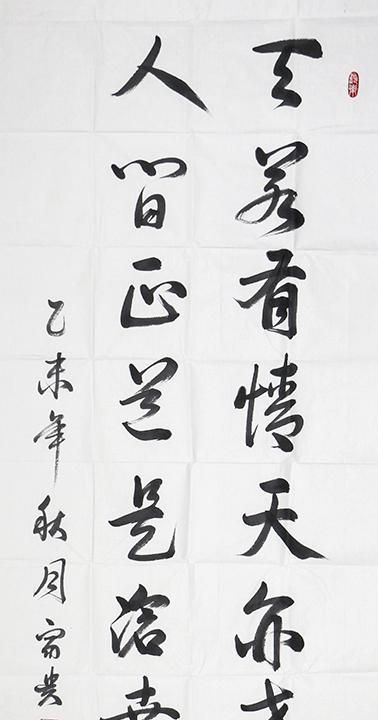 天若有情天亦老
人间正道是沧桑
乙未年秋月富贵